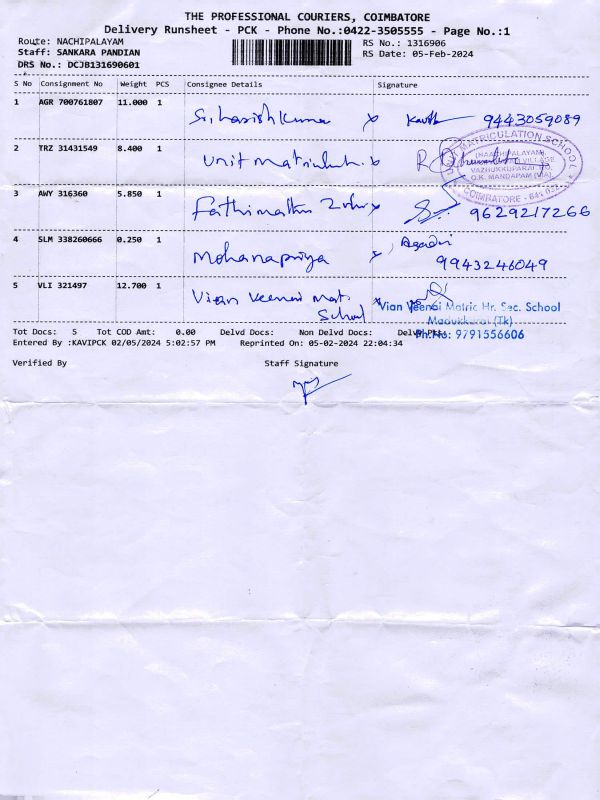 THE PROFESSIONAL COURIERS, COIMBATORE
Delivery Runsheet - PCK - Phone No.:0422-3505555 - Page No.:1
Route: NACHIPALAYAM
Staff: SANKARA PANDIAN
DRS No.: DCJB131690601
RS No.: 1316906
RS Date: 05-Feb-2024
S No Consignment No Weight PCS Consignee Details Signature
1 AGR 700761807 11.000 1 9443059089
2 TRZ 31431549 8.400 1 Unit
MATRICULATION SCHOOL
VILLAGE
VAZHUKKUPARAI
O.K. MANDAPAM (VIA)
COIMBATORE
3 AWY 316360 5.850 1 9629217266
4 SLM 338260666 0.250 1 Mohanapriya 9943246049
5 VLI 321497 12.700 1 Vian Veenai Mat.
School
Vian Veenai Matric Hr. Sec. School
Madukkarai (Tk)
Ph.No: 9791556606
Tot Docs: 5 Tot COD Amt: 0.00 Delvd Docs: Non Delvd Docs:
Entered By :KAVIPCK 02/05/2024 5:02:57 PM Reprinted On: 05-02-2024 22:04:34
Verified By Staff Signature